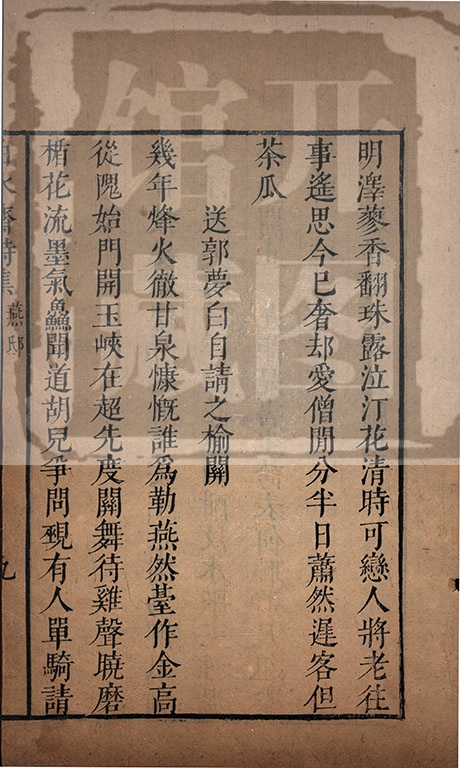 明澤蓼香翻珠露泣汀花清時可戀人將老徃
事遙思今已奢却愛僧閒分半日蕭然遲客但
茶瓜
送郭夢白自請之榆關
幾年烽火徹甘泉慷慨誰爲勒燕然臺作金高
從隗始門開玉峽在超先度關舞待雞聲曉磨
楯花流墨氣鱻聞道胡兒爭問覡有人單騎請
水齋詩集 燕邸 九
開
圖
館
藏